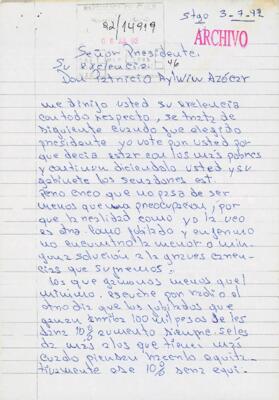 stgo 3-7-92
92/14919
ARCHIVO
Señor Presidente.
Su exelencia: 46
Don Patricio Aylwin Azócar
me dirijo usted su exelencia
con todo respecto, se trata de
siguiente cuando fue elegido
presidente yo vote por usted por
que decia estar con los más pobres
y continua diciendolo usted y su
gabinete los senadores est.
pero creo que no pasa de ser
menos que preocupacion, por
que la realidad como yo la veo
es otra como jubilado y enfermo
no encuentro la menor o min
guna solución a la graves caren
cias que sufremos.
los que ganamos menos que el
minimo. escuche por radio el
otro dia que los jubilados que
ganan entre 100 mil pesos se les
dara 10% aumento siempre se les
da más a los que tienen más
cuando piensan hacerlo equita
tivamente ose 10% sera equi.